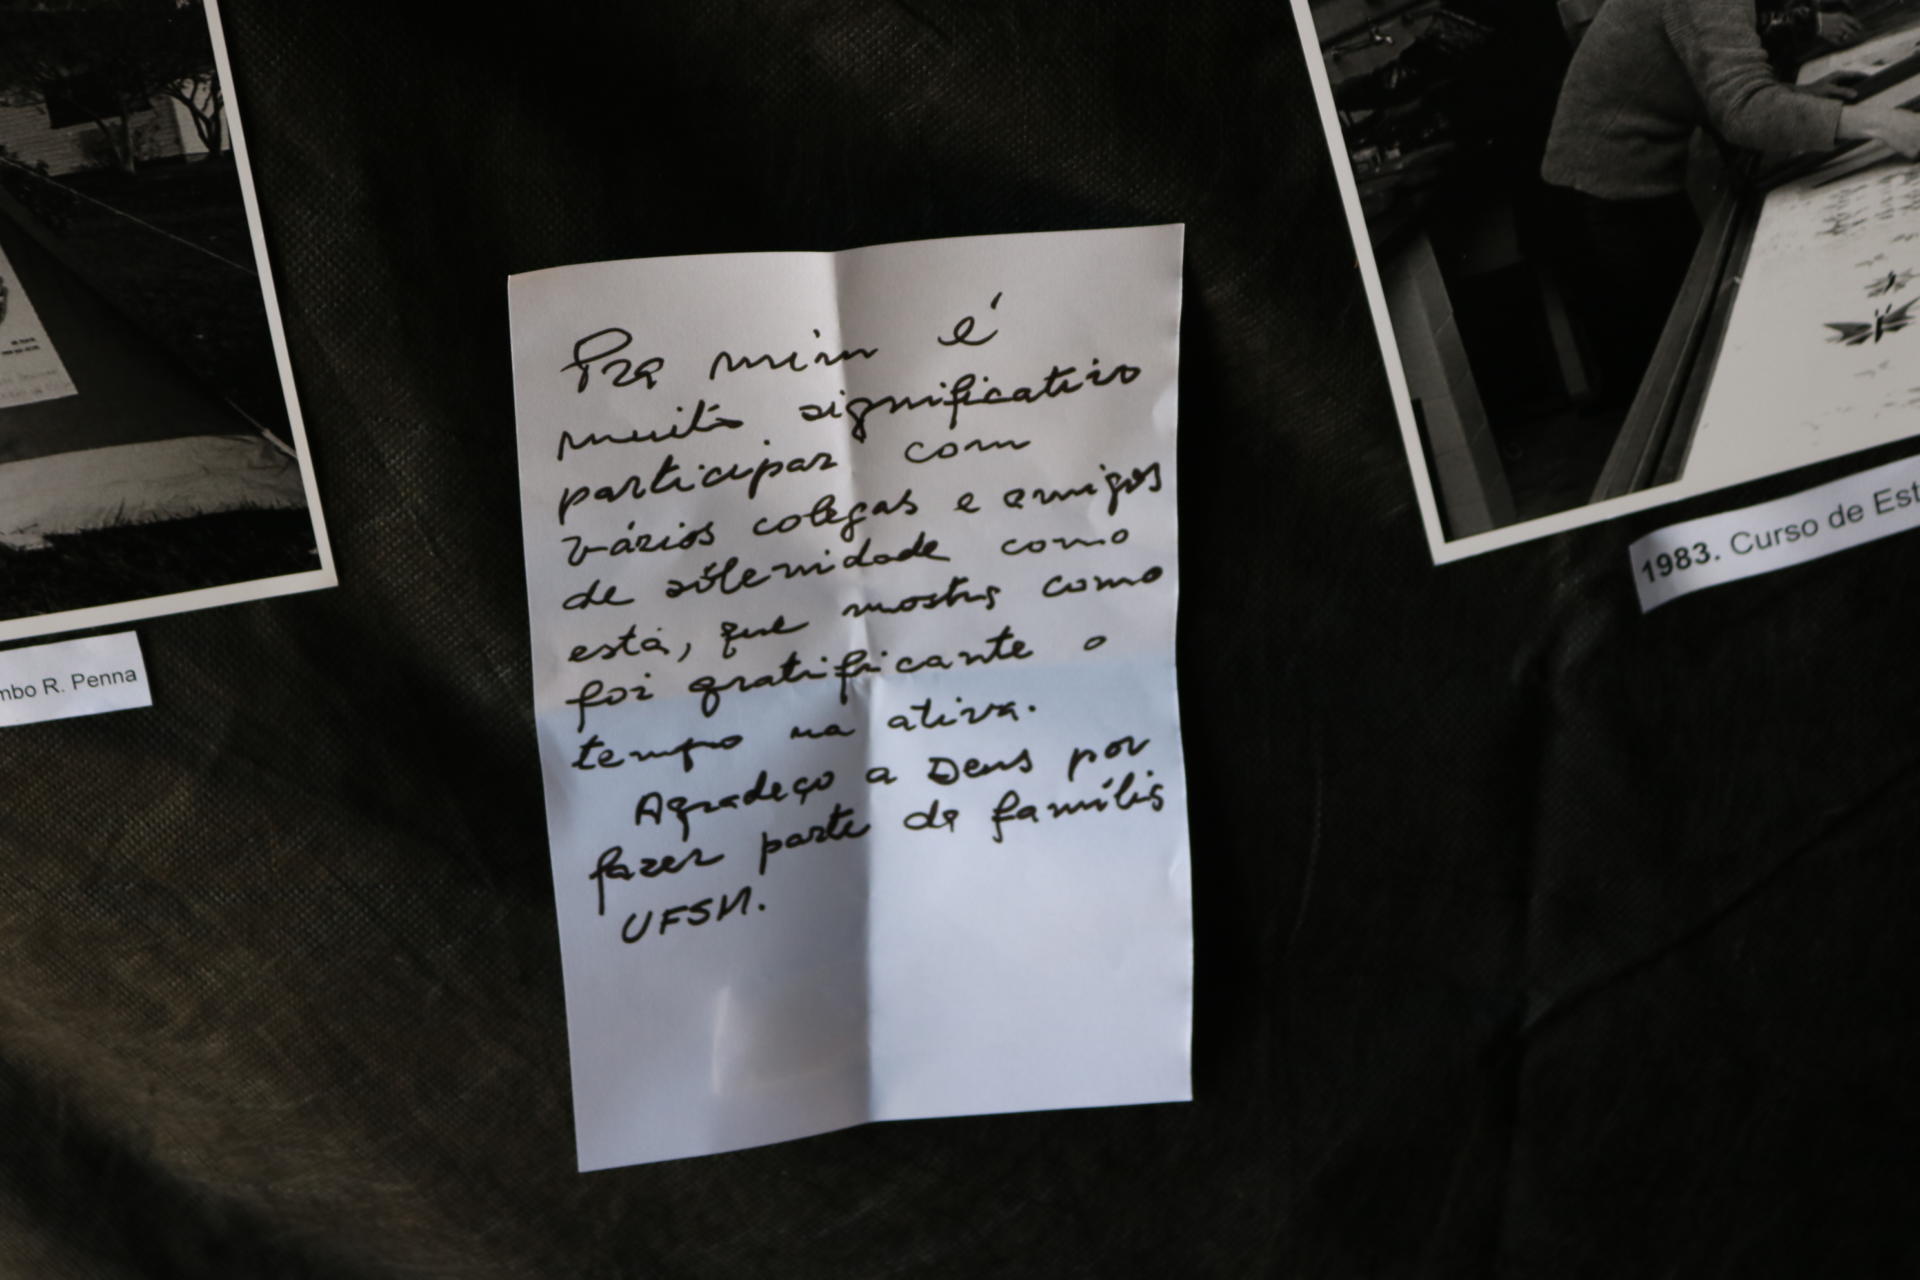 Pra mim é
muito significativo
participar com
vários colegas e amigos
de solenidade como
esta, que mostra como
foi gratificante o
tempo na ativa.
Agradeço a Deus por
fazer parte da família
UFSM.
mbo R. Penna
1983. Curso de Est